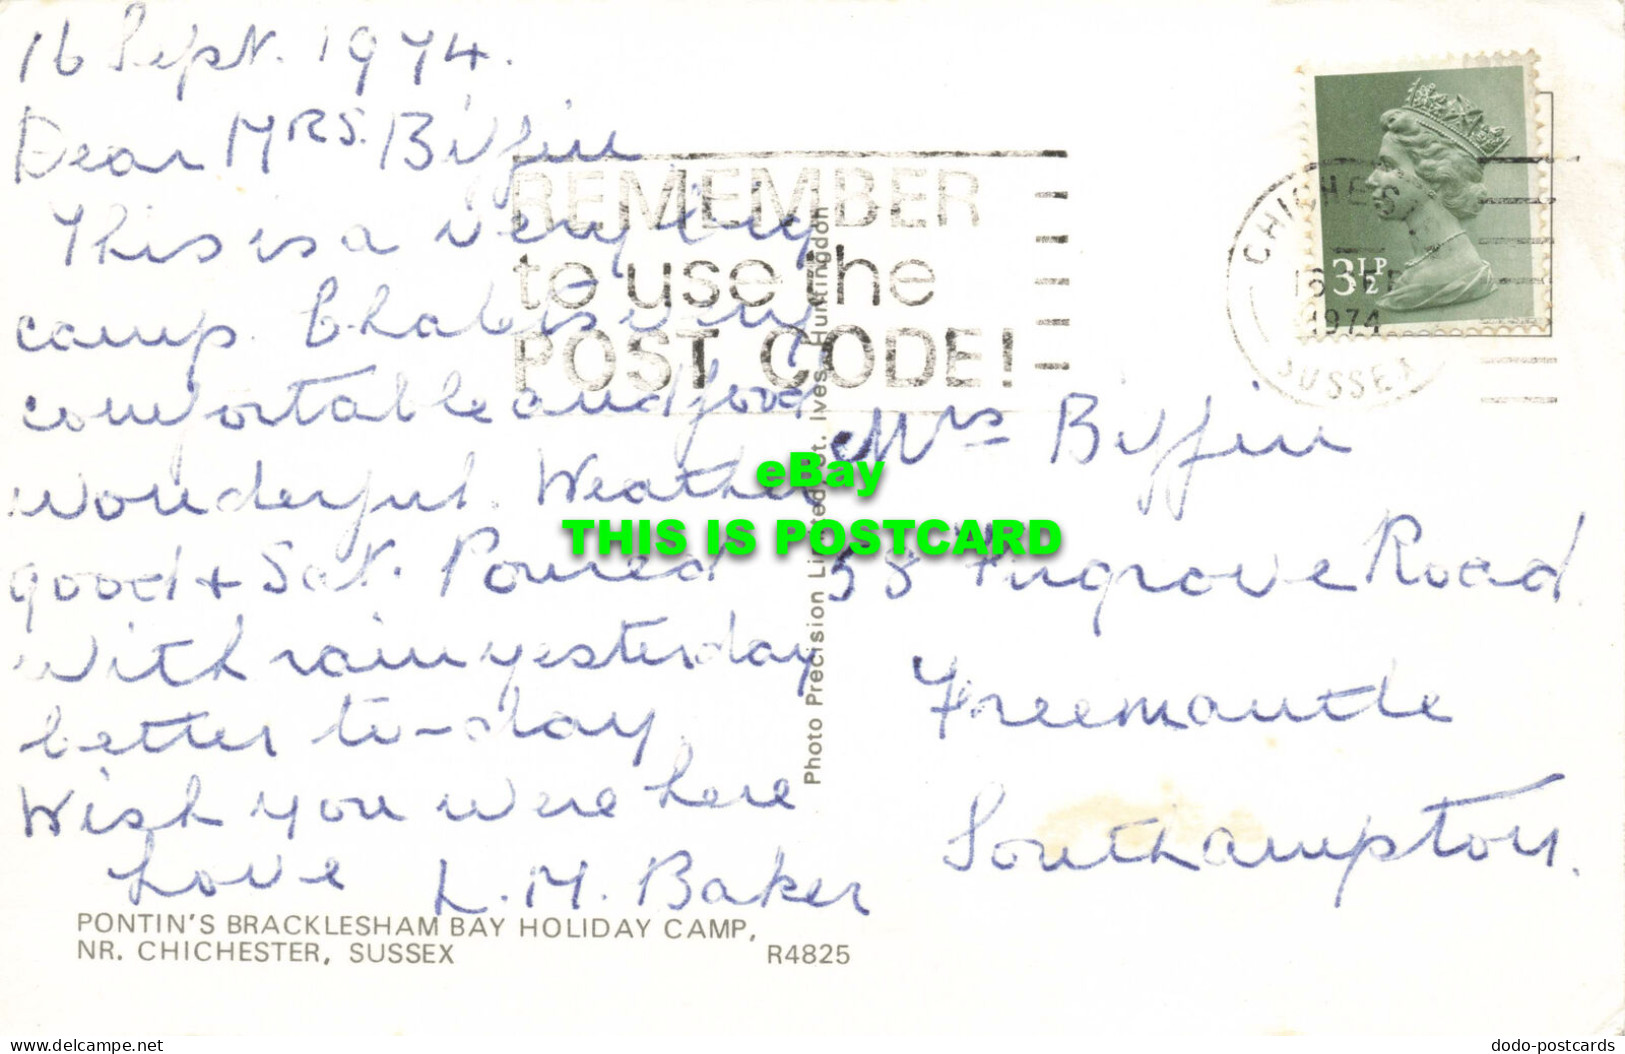 16 Sept. 1974.
Dear Mrs. Biffin
This is a very big
camp. Chalet is very
comfortable and food
wonderful. Weather
good + Sat. Poured
with rain yesterday
better to-day.
Wish you were here
Love L. M. Baker
PONTIN'S BRACKLESHAM BAY HOLIDAY CAMP,
NR. CHICHESTER, SUSSEX
R4825
Photo Precision Limited, St. Ives, Huntingdon
REMEMBER
to use the
POST CODE!
CHICHESTER
16 SEP
1974
SUSSEX
3½P
Mrs Biffin
58 Firgrove Road
Freemantle
Southampton.
eBay
THIS IS POSTCARD
delcampe.net
dodo-postcards